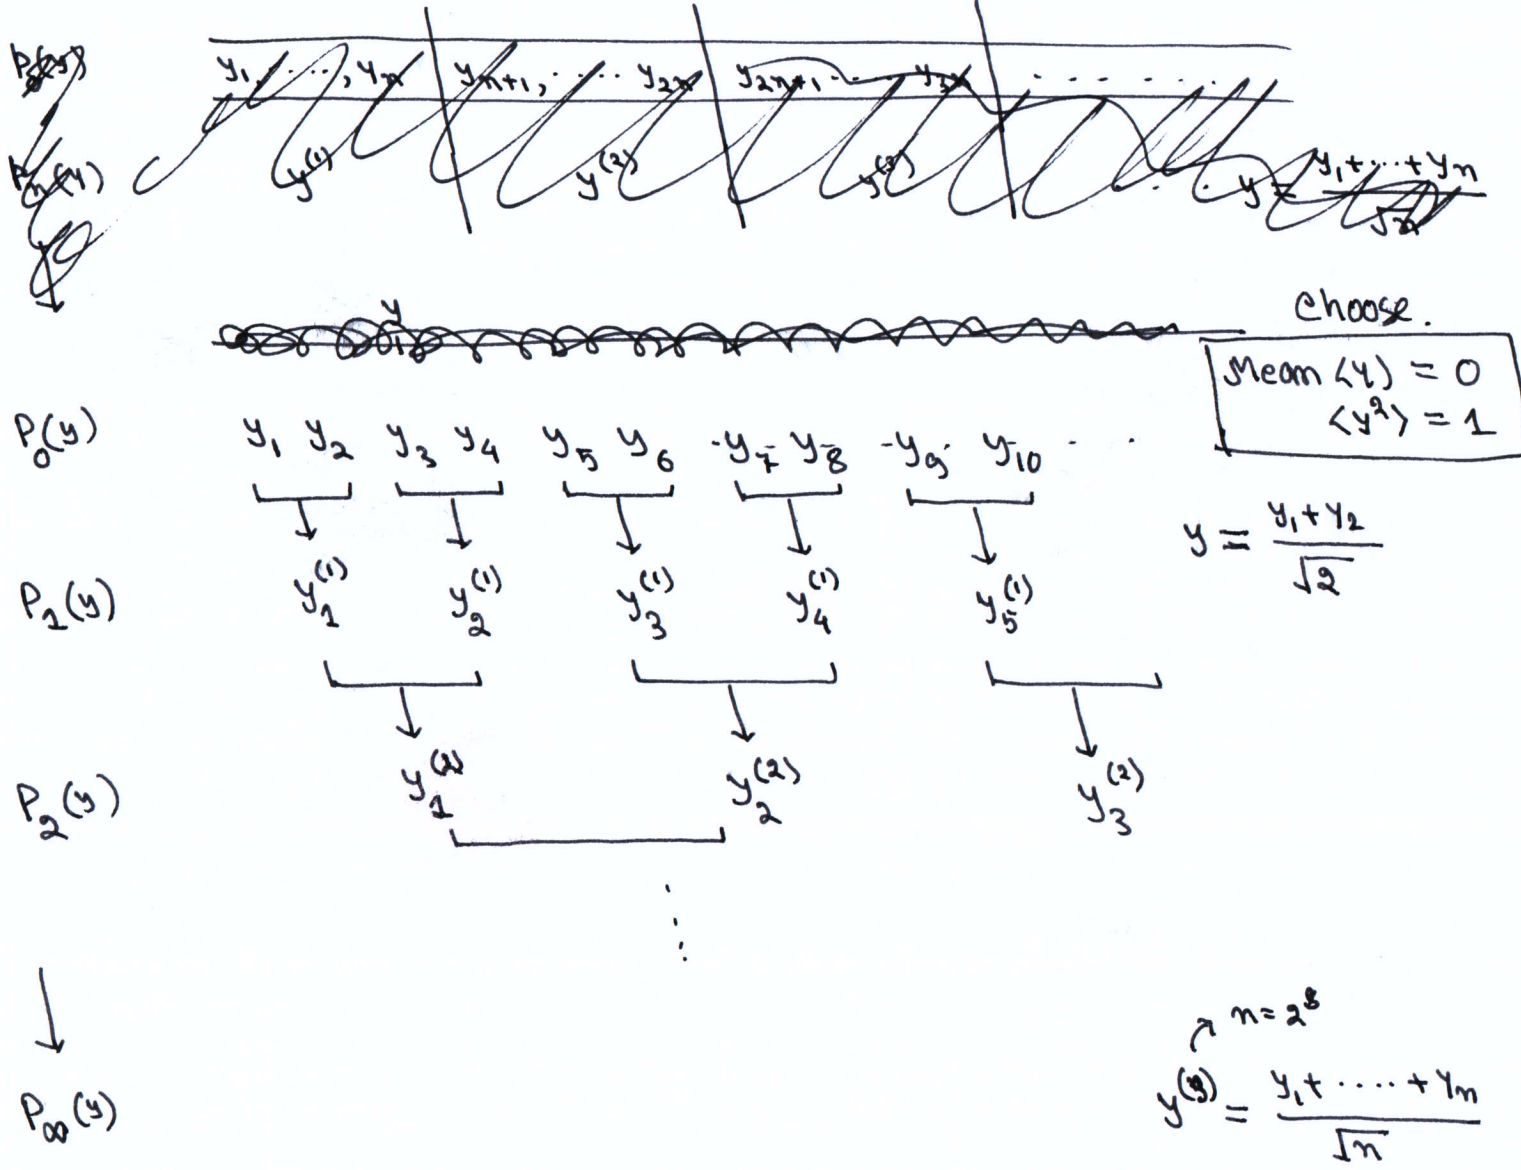 P₀(y) y₁, ····, yₙ yₙ₊₁, ···· y₂ₙ y₂ₙ₊₁ ··· y₃ₙ ······
Pₙ(y) y⁽¹⁾ y⁽²⁾ y⁽³⁾ ··· y = (y₁+···+yₙ)/√n
y
Choose.
Mean ⟨y⟩ = 0
⟨y²⟩ = 1
P₀(y) y₁ y₂ y₃ y₄ y₅ y₆ y₇ y₈ y₉ y₁₀ ··
y = (y₁+y₂)/√2
P₁(y) y₁⁽¹⁾ y₂⁽¹⁾ y₃⁽¹⁾ y₄⁽¹⁾ y₅⁽¹⁾
P₂(y) y₁⁽²⁾ y₂⁽²⁾ y₃⁽²⁾
⋮
P∞(y)
n=2ˢ
y⁽ˢ⁾ = (y₁+····+yₙ)/√n